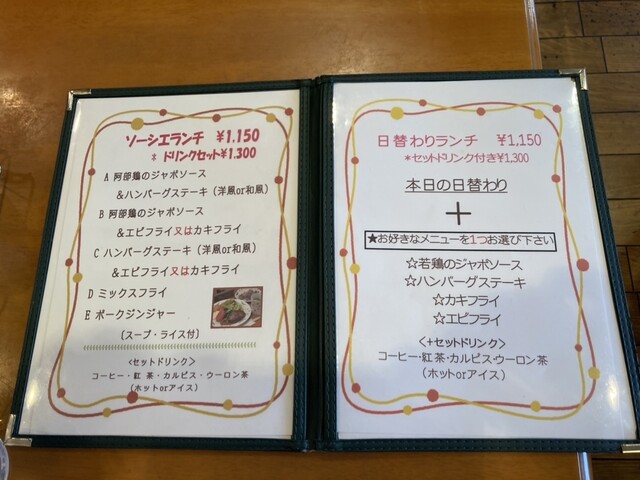 ソーシエランチ ¥1,150
* ドリンクセット¥1,300
A 阿部鶏のジャポソース
&ハンバーグステーキ (洋風or和風)
B 阿部鶏のジャポソース
&エビフライ又はカキフライ
C ハンバーグステーキ (洋風or和風)
&エビフライ又はカキフライ
D ミックスフライ
E ポークジンジャー
(スープ・ライス付)
<セットドリンク>
コーヒー・紅茶・カルピス・ウーロン茶
(ホットorアイス)
日替わりランチ ¥1,150
*セットドリンク付き¥1,300
本日の日替わり
+
★お好きなメニューを1つお選び下さい
☆若鶏のジャポソース
☆ハンバーグステーキ
☆カキフライ
☆エビフライ
<+セットドリンク>
コーヒー・紅茶・カルピス・ウーロン茶
(ホットorアイス)